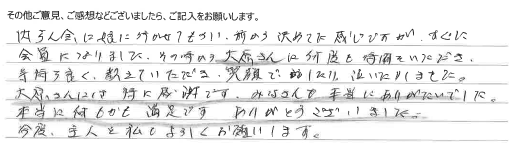 その他ご意見、ご感想などございましたら、ご記入をお願いします。
内らん会に娘に行かせてもらい、前の 決めてた 感じが、すぐに
会員になりました。その時の大原さんに何度も時間をいただき、
手際よく、教えていただき、笑顔で 話したり、泣いたりしました。
大原さんには 特に感謝です。みなさんも 本当にありがたいでした。
本当に何もかも 満足です ありがとうございました。
今度、主人と私もよろしくお願いします。